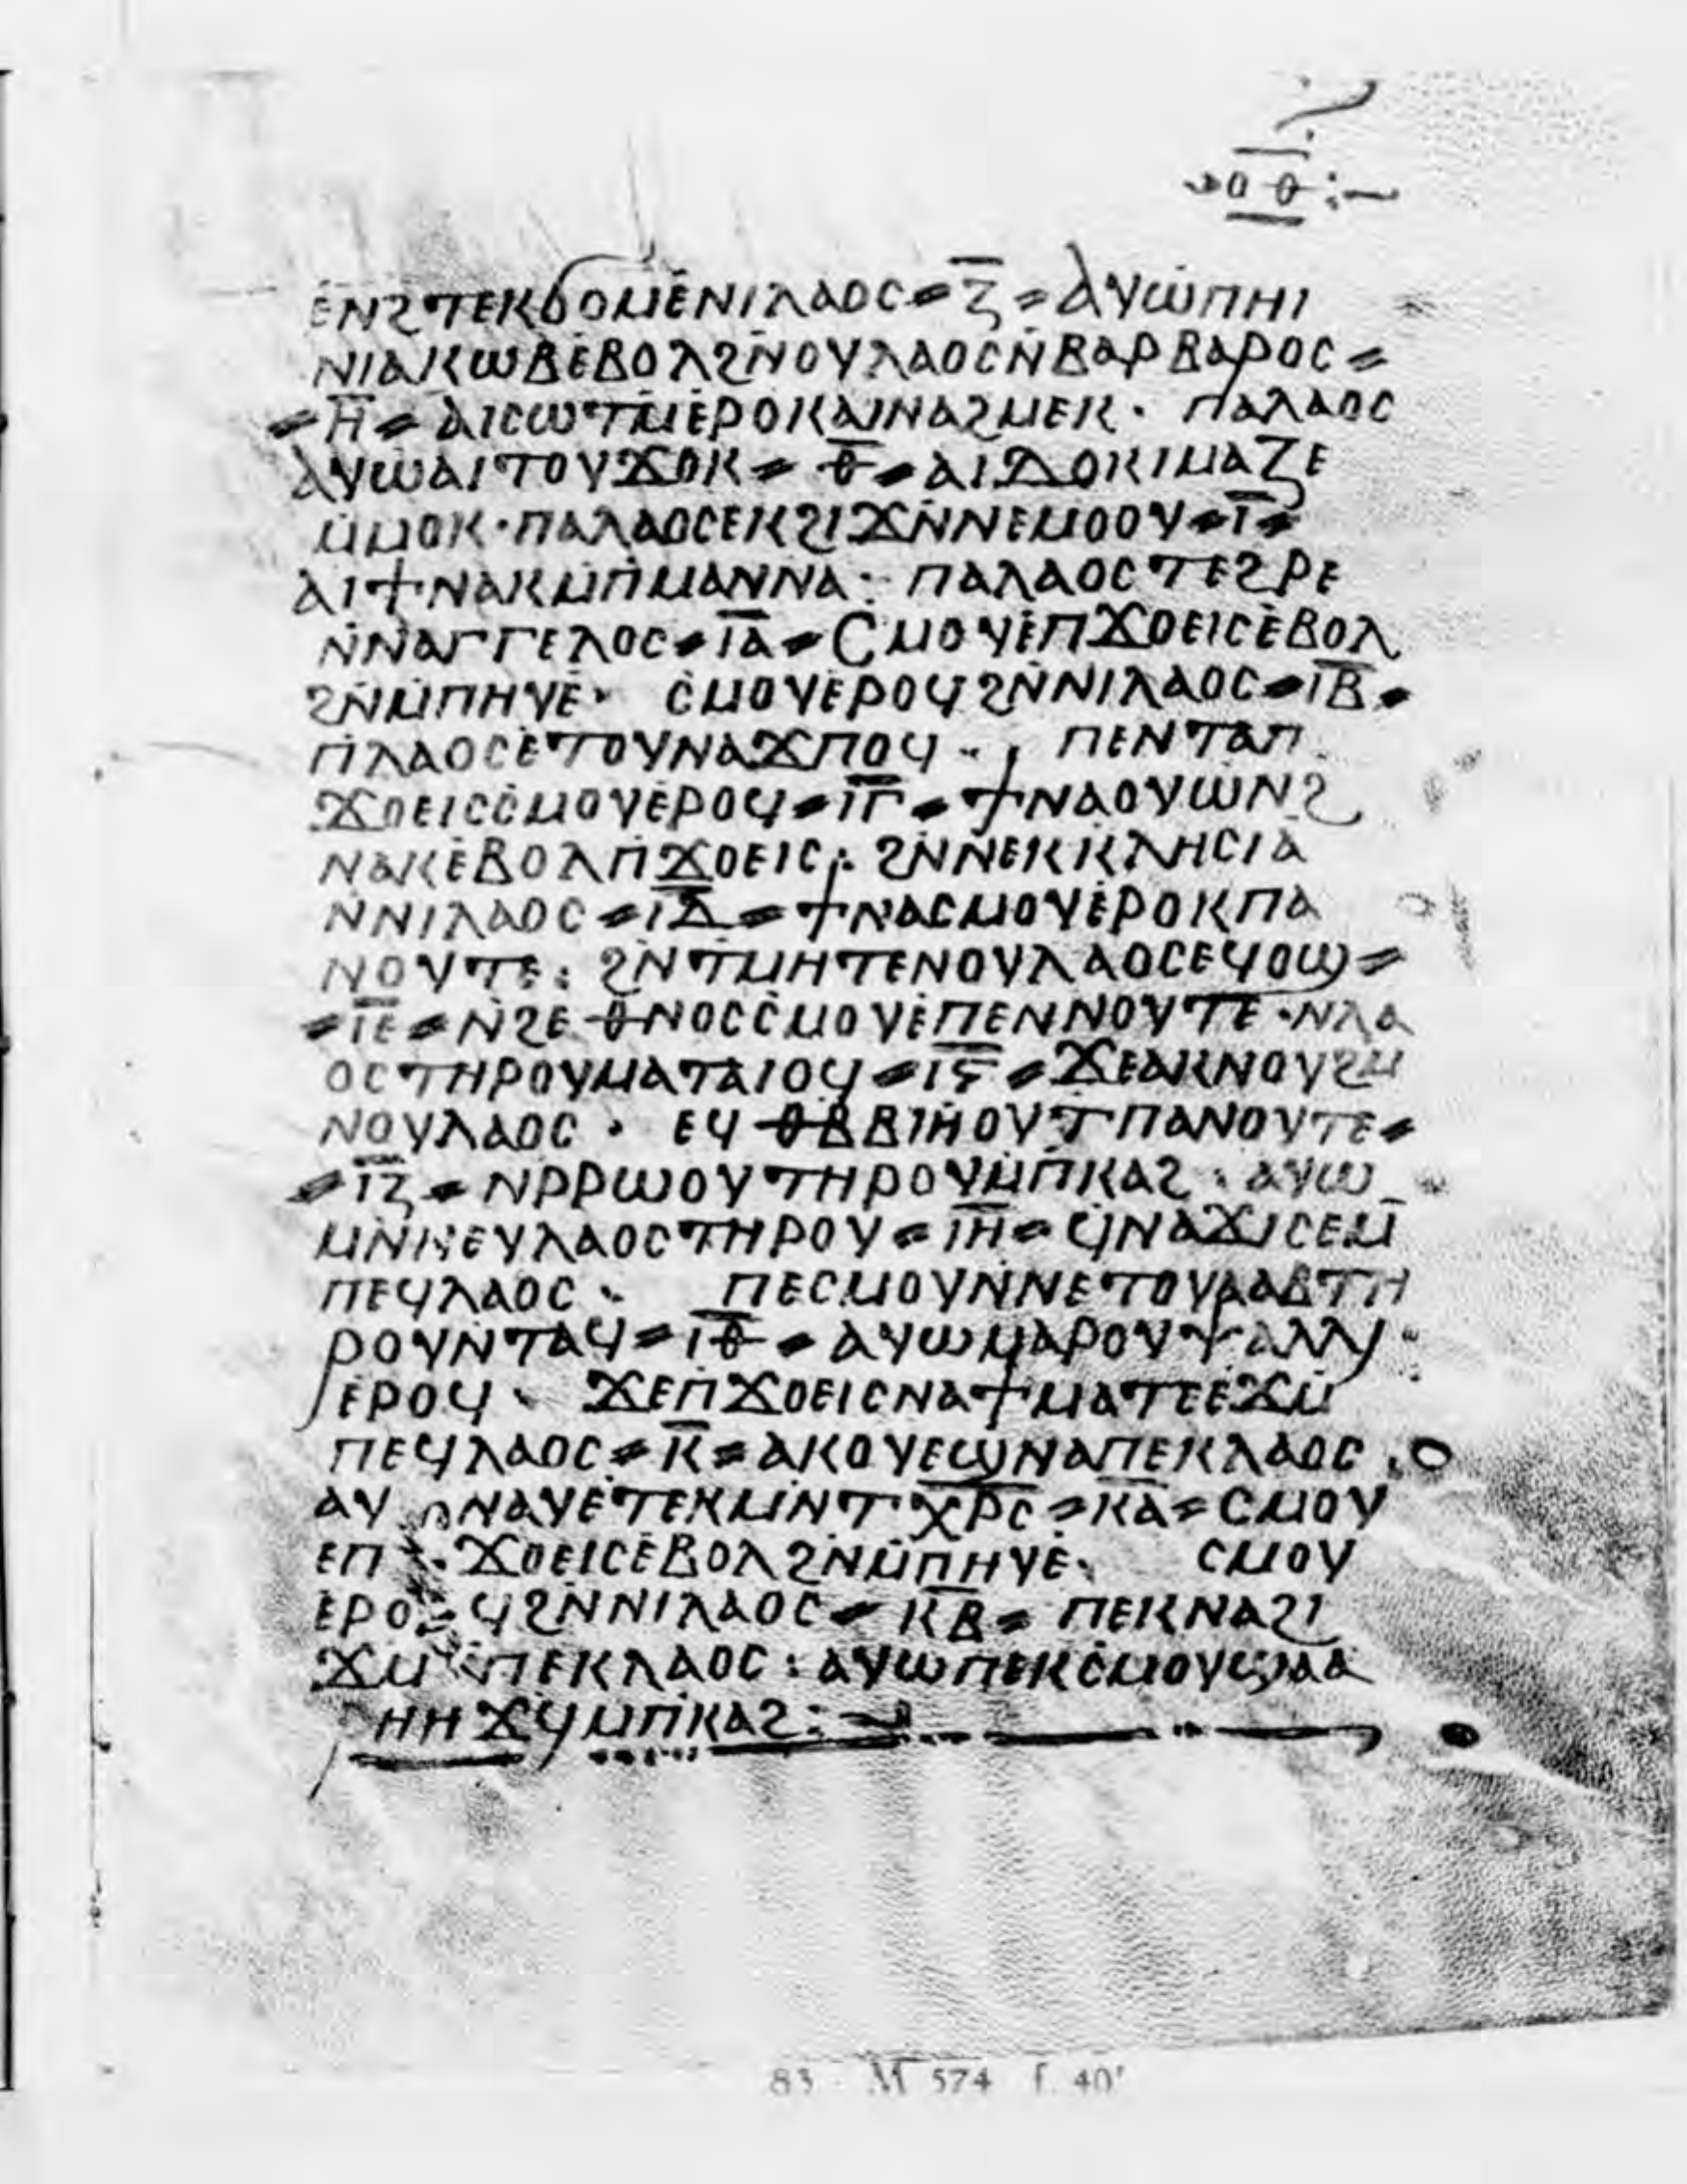 ⲟⲑ
ⲉⲛϩⲧⲉⲕϭⲟⲙⲉⲛⲓⲗⲁⲟⲥ = ⲍ̅ = ⲁⲩⲱⲡⲏⲓ
ⲛⲓⲁⲕⲱⲃⲉⲃⲟⲗϩⲛⲟⲩⲗⲁⲟⲥⲛⲃⲁⲣⲃⲁⲣⲟⲥ =
= ⲏ̅ = ⲁⲓⲥⲱⲧⲙⲉⲣⲟⲕⲁⲓⲛⲁϩⲙⲉⲕ · ⲡⲁⲗⲁⲟⲥ
ⲁⲩⲱⲁⲓⲧⲟⲩϫⲟⲕ = ⲑ̅ = ⲁⲓⲇⲟⲕⲓⲙⲁⲍⲉ
ⲙⲙⲟⲕ · ⲡⲁⲗⲁⲟⲥⲉⲕϩⲓϫⲛⲛⲉⲙⲟⲟⲩ = ⲓ̅ =
ⲁⲓϯⲛⲁⲕⲙⲡⲙⲁⲛⲛⲁ : ⲡⲁⲗⲁⲟⲥⲧⲉϩⲣⲉ
ⲛⲛⲁⲅⲅⲉⲗⲟⲥ = ⲓ̅ⲁ̅ = ⲥⲙⲟⲩⲉⲡϫⲟⲉⲓⲥⲉⲃⲟⲗ
ϩⲛⲙⲡⲏⲩⲉ · ⲥⲙⲟⲩⲉⲣⲟϥϩⲛⲛⲓⲗⲁⲟⲥ = ⲓ̅ⲃ̅ =
ⲡⲗⲁⲟⲥⲉⲧⲟⲩⲛⲁϫⲡⲟϥ · ⲡⲉⲛⲧⲁⲡ
ϫⲟⲉⲓⲥⲥⲙⲟⲩⲉⲣⲟϥ = ⲓ̅ⲅ̅ = ϯⲛⲁⲟⲩⲱⲛϩ
ⲛⲁⲕⲉⲃⲟⲗⲡϫⲟⲉⲓⲥ : ϩⲛⲛⲉⲕⲕⲗⲏⲥⲓⲁ
ⲛⲛⲓⲗⲁⲟⲥ = ⲓ̅ⲇ̅ = ϯⲛⲁⲥⲙⲟⲩⲉⲣⲟⲕⲡⲁ
ⲛⲟⲩⲧⲉ : ϩⲛⲧⲙⲏⲧⲉⲛⲟⲩⲗⲁⲟⲥⲉϥⲟϣ =
= ⲓ̅ⲉ̅ = ⲛϩⲉⲑⲛⲟⲥⲥⲙⲟⲩⲉⲡⲉⲛⲛⲟⲩⲧⲉ · ⲛⲗⲁ
ⲟⲥⲧⲏⲣⲟⲩⲙⲁⲧⲁⲓⲟϥ = ⲓ̅ⲋ̅ = ϫⲉⲁⲕⲛⲟⲩϩⲙ
ⲛⲟⲩⲗⲁⲟⲥ · ⲉϥⲑⲃⲃⲓⲏⲟⲩⲧⲡⲁⲛⲟⲩⲧⲉ =
= ⲓ̅ⲍ̅ = ⲛⲣⲣⲱⲟⲩⲧⲏⲣⲟⲩⲙⲡⲕⲁϩ : ⲁⲩⲱ
ⲙⲛⲛⲉⲩⲗⲁⲟⲥⲧⲏⲣⲟⲩ = ⲓ̅ⲏ̅ = ϥⲛⲁϫⲓⲥⲉⲙ
ⲡⲉϥⲗⲁⲟⲥ · ⲡⲉⲥⲙⲟⲩⲛⲛⲉⲧⲟⲩⲁⲁⲃⲧⲏ
ⲣⲟⲩⲛⲧⲁϥ = ⲓ̅ⲑ̅ = ⲁⲩⲱⲙⲁⲣⲟⲩⲯⲁⲗⲗⲓ
ⲉⲣⲟϥ · ϫⲉⲡϫⲟⲉⲓⲥⲛⲁϯⲙⲁⲧⲉⲉϫⲙ
ⲡⲉϥⲗⲁⲟⲥ = ⲕ̅ = ⲁⲕⲟⲩⲉϣⲛⲁⲡⲉⲕⲗⲁⲟⲥ
ⲉⲧⲉⲕⲙⲛⲧⲭ̅ⲣ̅ⲥ̅ = ⲕ̅ⲁ̅ = ⲥⲙⲟⲩ
ⲉⲡϫⲟⲉⲓⲥⲉⲃⲟⲗϩⲛⲙⲡⲏⲩⲉ · ⲥⲙⲟⲩ
ⲉⲣⲟϥϩⲛⲛⲓⲗⲁⲟⲥ = ⲕ̅ⲃ̅ = ⲡⲉⲕⲛⲁϩⲓ
ϫⲙⲡⲉⲕⲗⲁⲟⲥ : ⲁⲩⲱⲡⲉⲕⲥⲙⲟⲩϣⲁⲁ
ⲙⲡⲕⲁϩ :
83 M 574 f. 40r